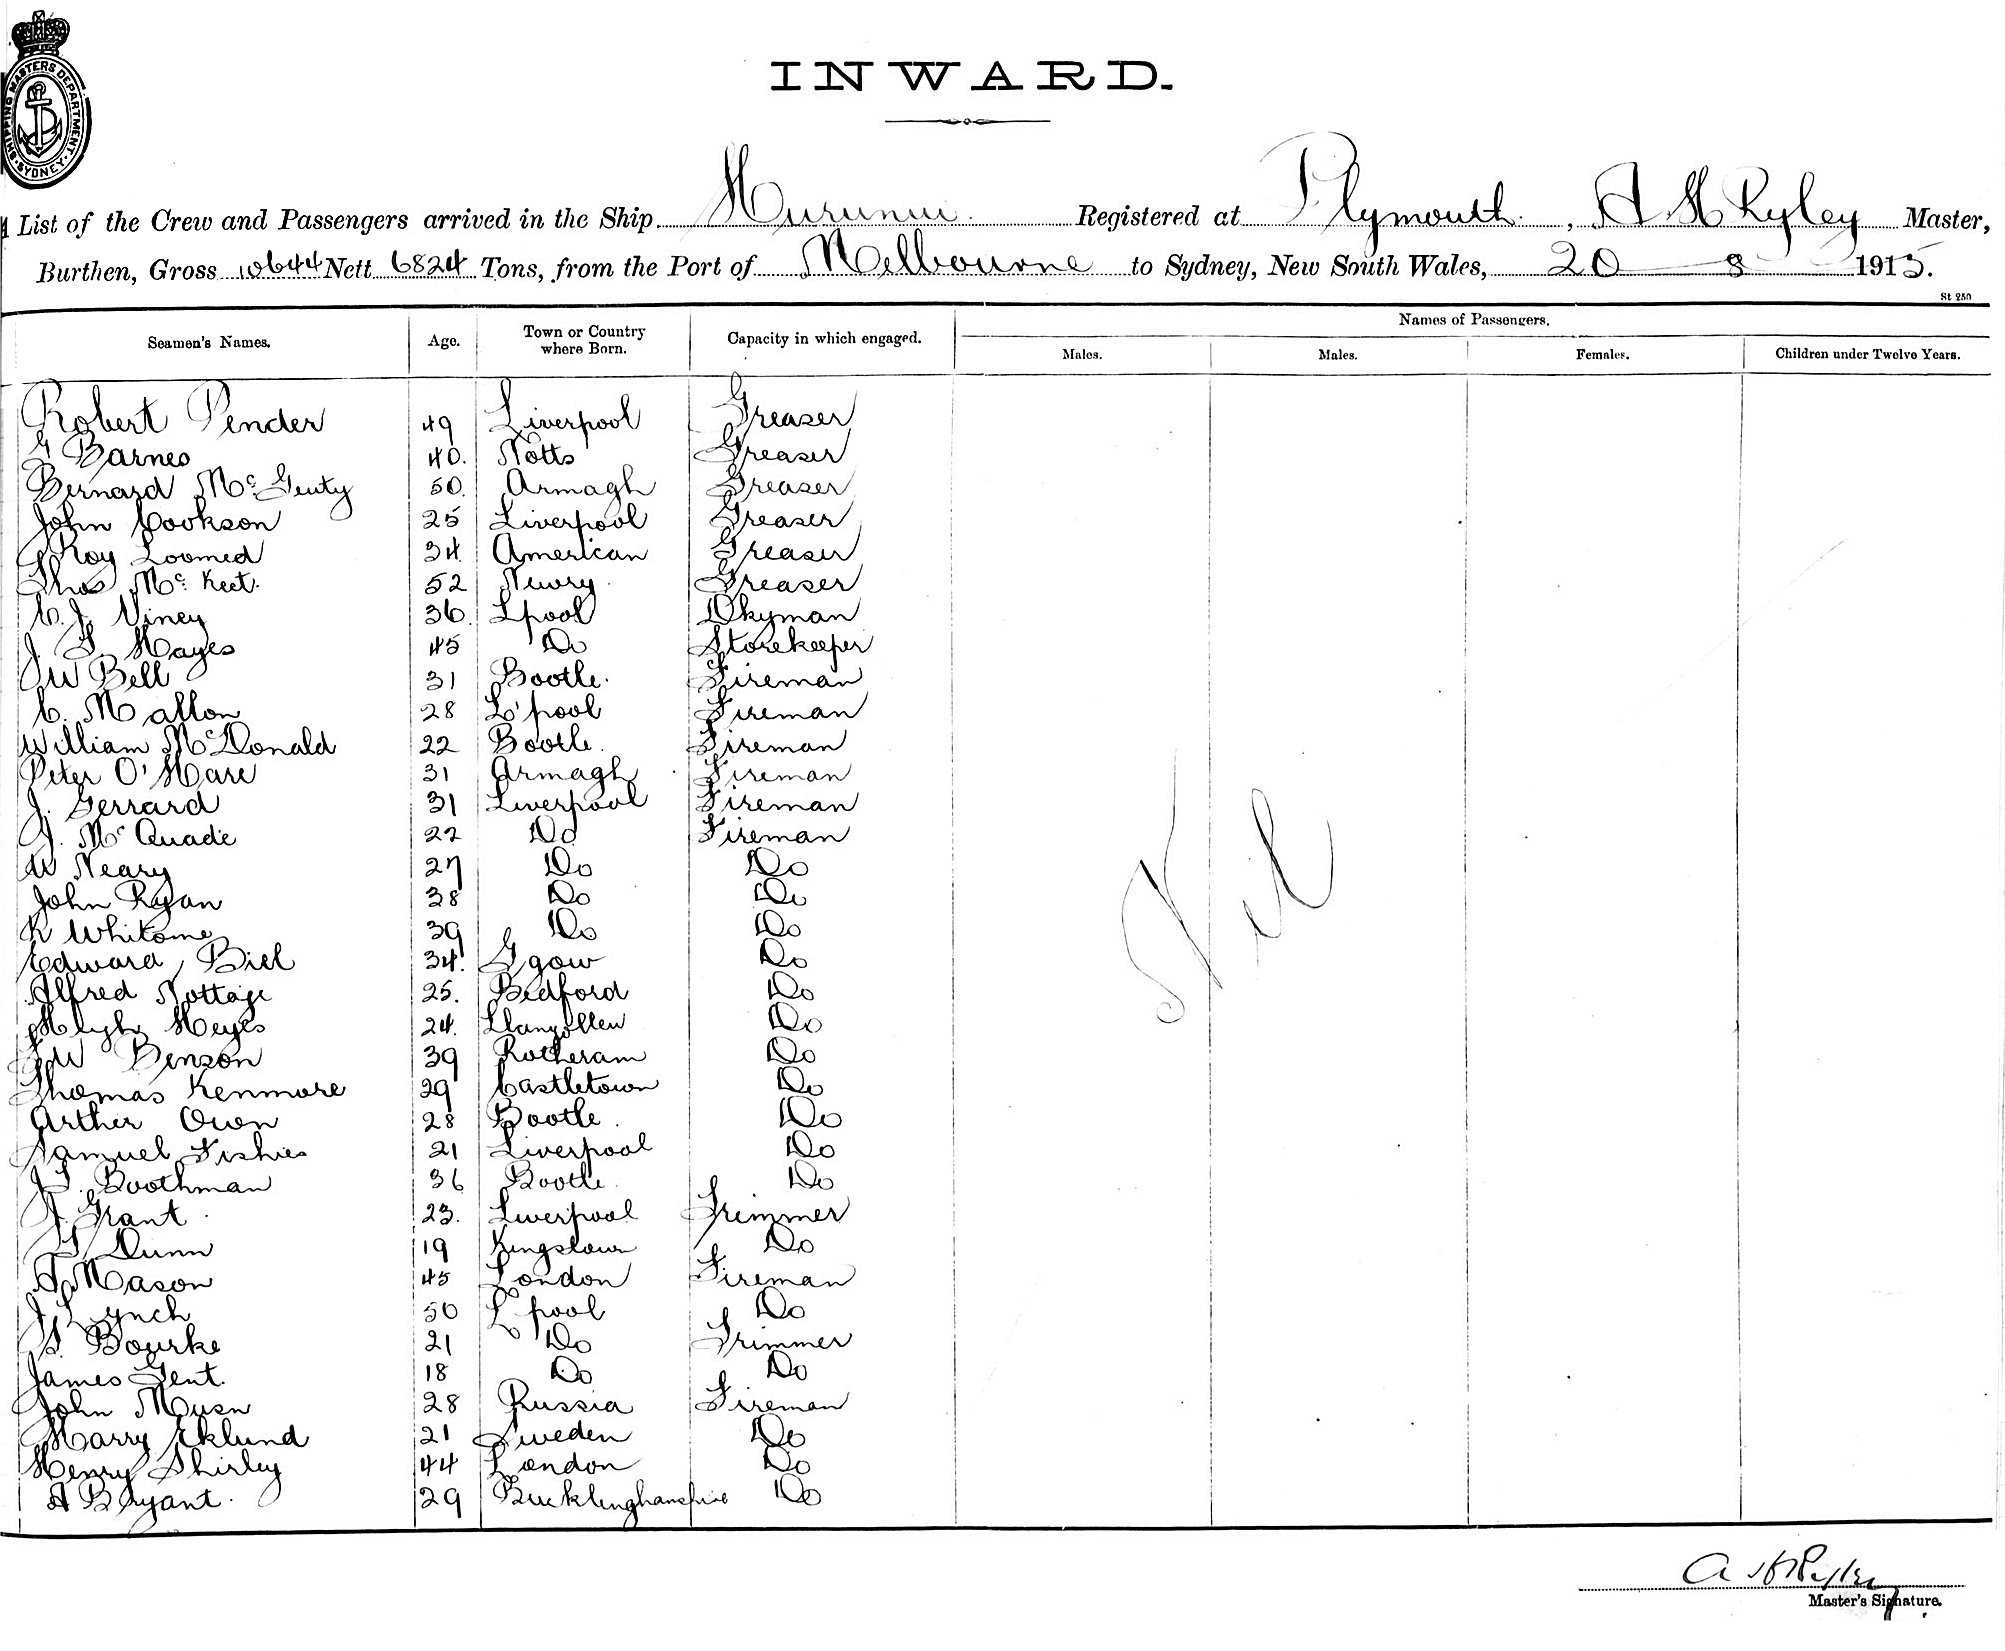 SHIPPING MASTERS DEPARTMENT. SYDNEY
INWARD.
List of the Crew and Passengers arrived in the Ship Hurunui. Registered at Plymouth, A H Ryley Master,
Burthen, Gross 10644 Nett 6824 Tons, from the Port of Melbourne to Sydney, New South Wales, 20 8 1915.
St 250
Seamen's Names. Age. Town or Country where Born. Capacity in which engaged. Names of Passengers.
Males. Males. Females. Children under Twelve Years.
Robert Pender 49 Liverpool Greaser
G Barnes 40. Notts Greaser
Bernard Mc Genty 50. Armagh Greaser
John Cookson 25 Liverpool Greaser
G Roy Loomed 34 American Greaser
Thos Mc Keet. 52 Newry Greaser
C. J. Viney 36. Lpool Dkyman
J. T. Hayes 45 Do Storekeeper
W Bell 31 Bootle. Fireman
C. Mallon 28 L'pool Fireman
William McDonald 22 Bootle. Fireman
Peter O'Hare 31 Armagh Fireman
J. Gerrard 31 Liverpool Fireman
J. Mc Quade 22 Do Fireman
W Neary 27 Do Do
John Ryan 38 Do Do
K Whitome 39 Do Do
Edward Biel 34. Ggow Do
Alfred Nottage 25. Bedford Do
Hugh Heyes 24. Llangollen Do
J W Benson 39 Rotheram Do
Thomas Kenmore 29 Castletown Do
Arther Owen 28 Bootle. Do
Samuel Fishies 21 Liverpool Do
J T. Boothman 36 Bootle. Do
J. Grant 23. Liverpool Trimmer
T Dunn 19 Kingstown Do
A Mason 45 London Fireman
J Lynch 50 L'pool Do
S. Bourke 21 Do Trimmer
James Gent. 18 Do Do
John Musn 28 Russia Fireman
Harry Eklund 21 Sweden Do
Henry Shirley 44 London Do
A Bryant. 29 Bucklinghamshire Do
Nil
A H Ryley
Master's Signature.